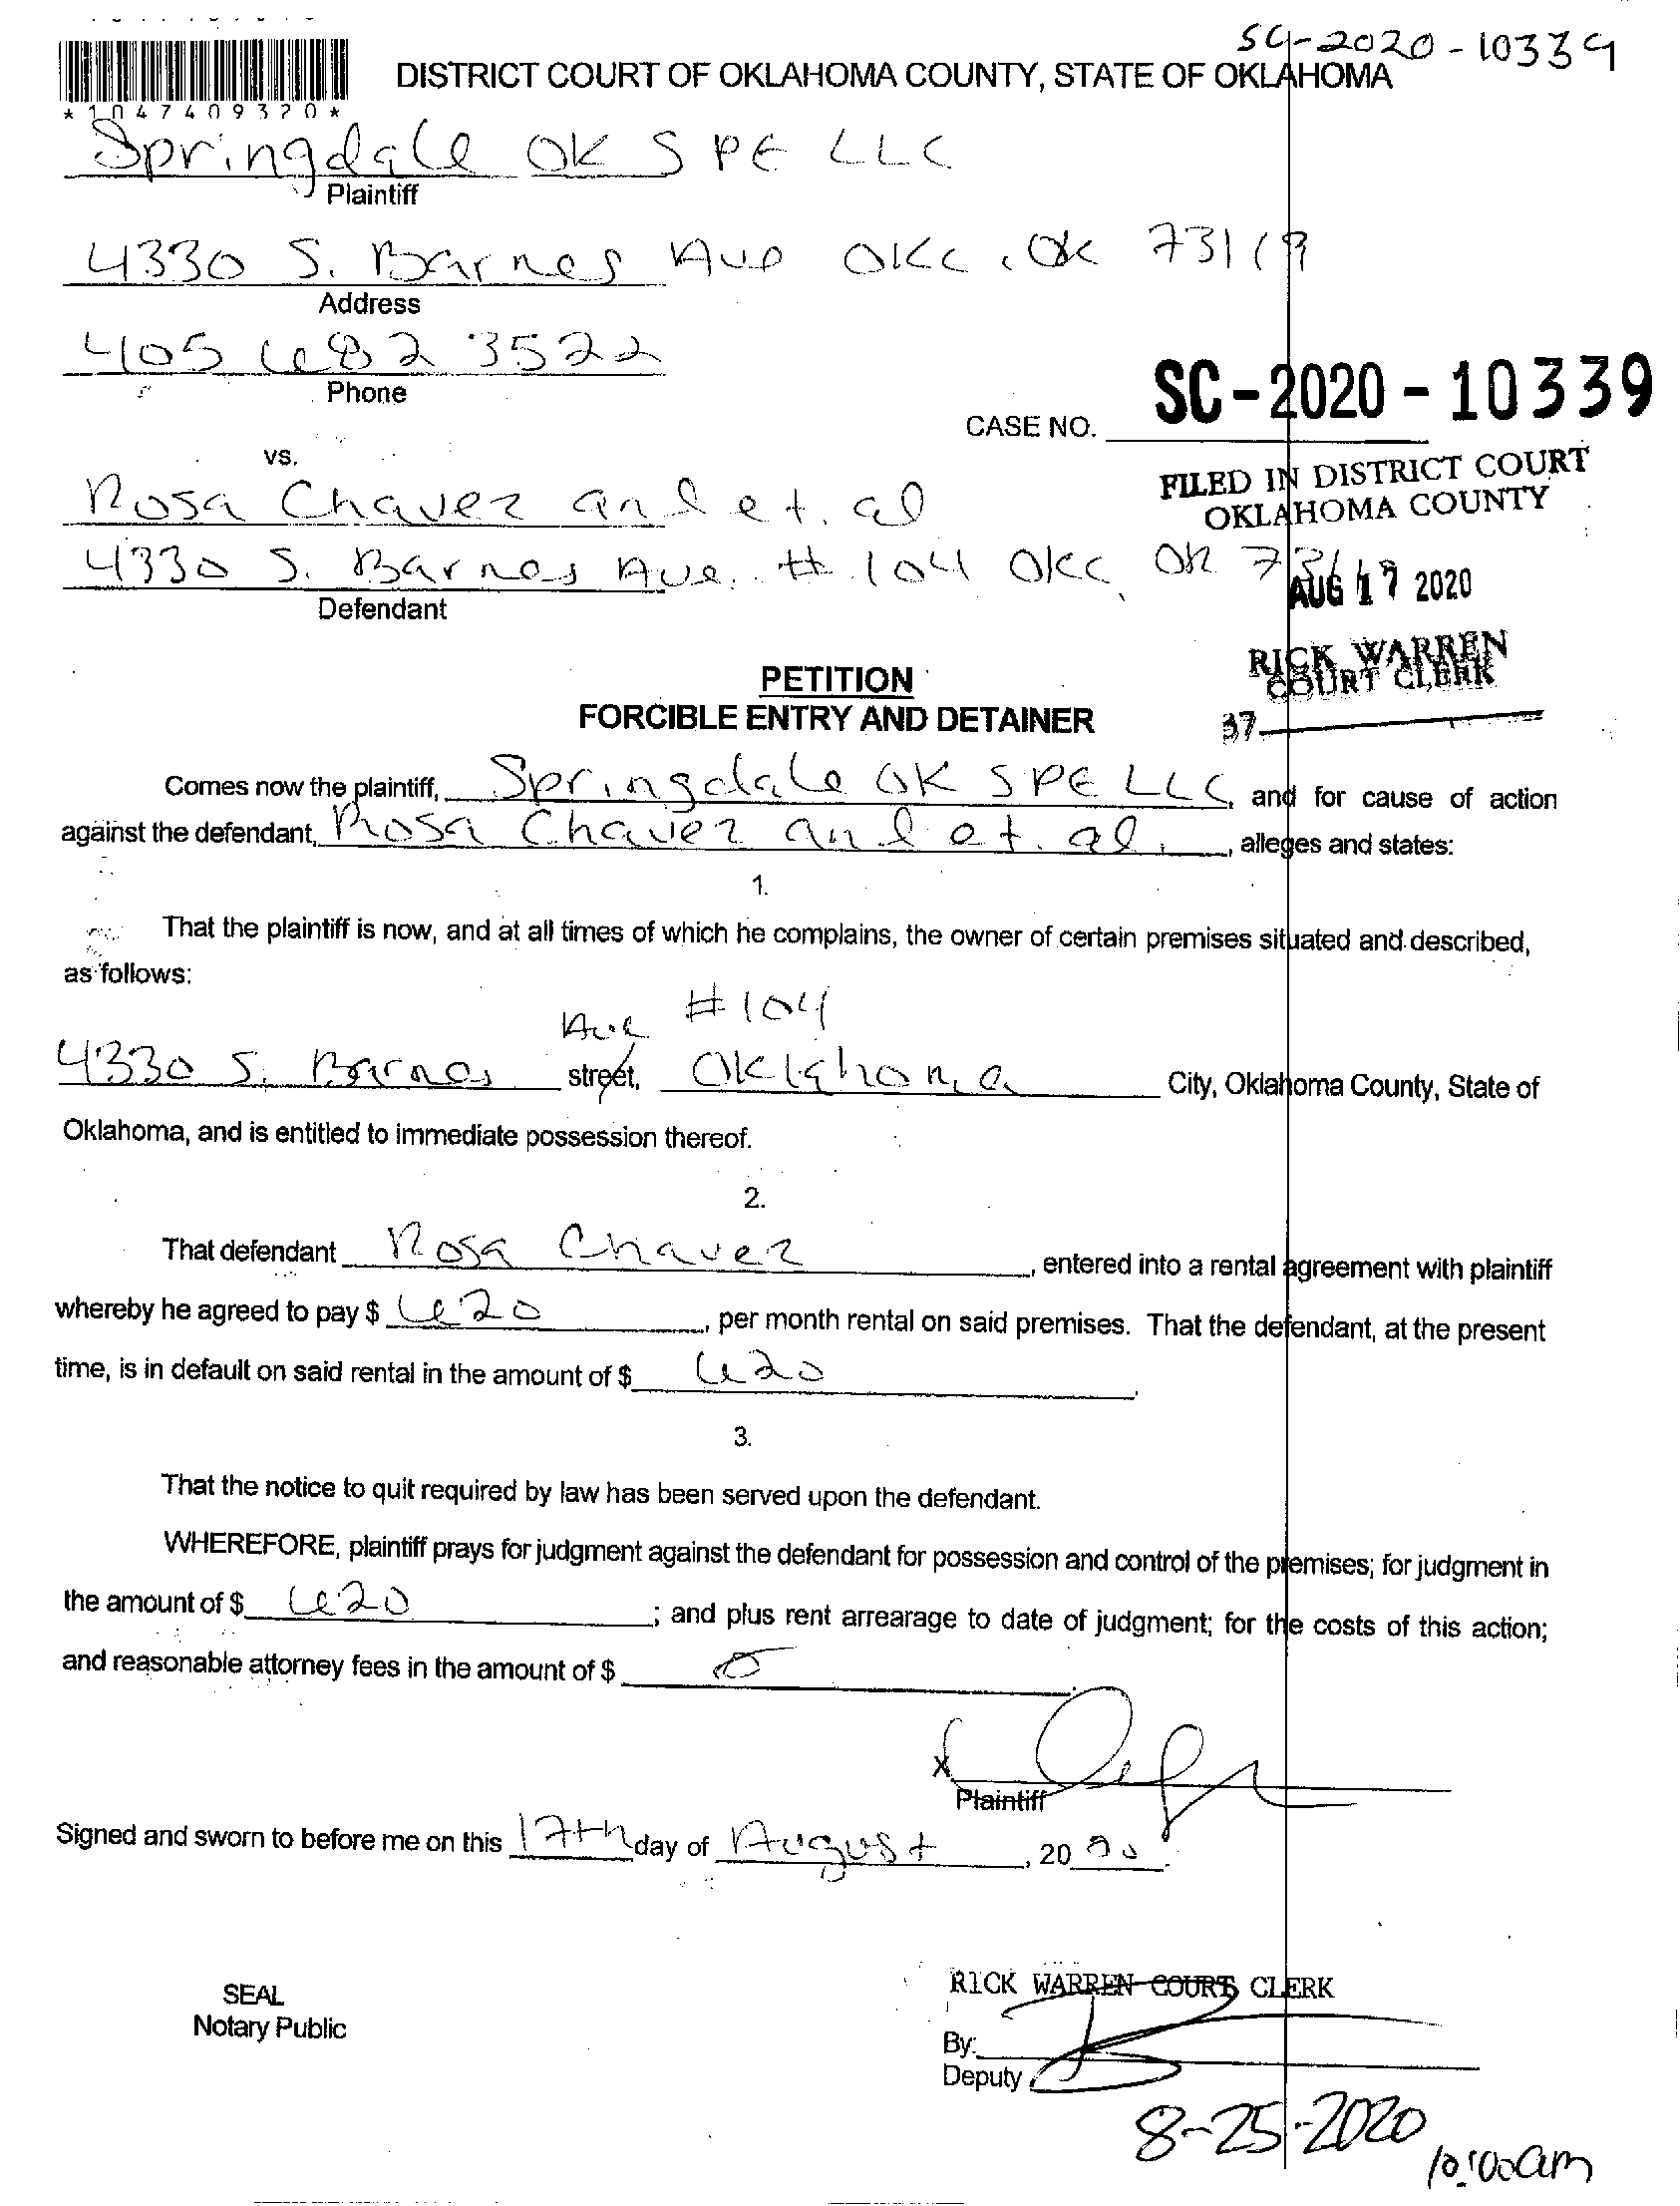 SC-2020-10339
DISTRICT COURT OF OKLAHOMA COUNTY, STATE OF OKLAHOMA
*1047409320*
Springdale OK SPE LLC
Plaintiff
4330 S. Barnes Ave OKC, OK 73119
Address
405 682 3522
Phone
CASE NO. SC-2020-10339
vs.
FILED IN DISTRICT COURT
OKLAHOMA COUNTY
Rosa Chavez and et. al
4330 S. Barnes Ave. #104 OKC, OK 73119
AUG 17 2020
Defendant
RICK WARREN
COURT CLERK
37
PETITION
FORCIBLE ENTRY AND DETAINER
Comes now the plaintiff, Springdale OK SPE LLC, and for cause of action
against the defendant, Rosa Chavez and et. al., alleges and states:
1.
That the plaintiff is now, and at all times of which he complains, the owner of certain premises situated and described,
as follows:
Ave #104
4330 S. Barnes street, Oklahoma City, Oklahoma County, State of
Oklahoma, and is entitled to immediate possession thereof.
2.
That defendant Rosa Chavez, entered into a rental agreement with plaintiff
whereby he agreed to pay $ 620, per month rental on said premises. That the defendant, at the present
time, is in default on said rental in the amount of $ 620.
3.
That the notice to quit required by law has been served upon the defendant.
WHEREFORE, plaintiff prays for judgment against the defendant for possession and control of the premises; for judgment in
the amount of $ 620; and plus rent arrearage to date of judgment; for the costs of this action;
and reasonable attorney fees in the amount of $ 0.
X
Plaintiff
Signed and sworn to before me on this 17th day of August, 2020.
SEAL
Notary Public
RICK WARREN COURT CLERK
By:
Deputy
8-25-2020
10:00am